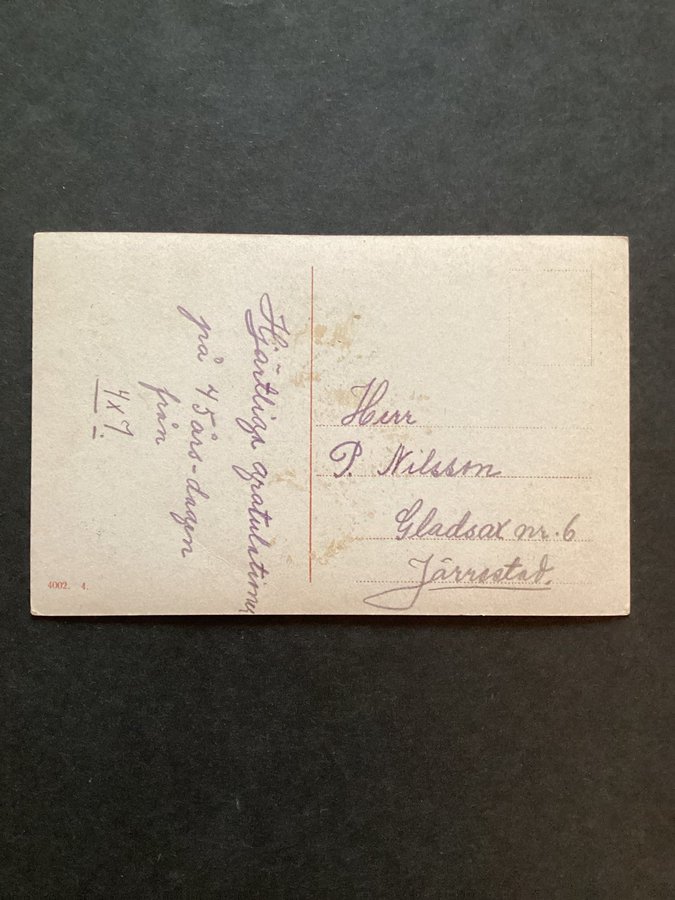 Hjärtliga gratulationer
på 45 års-dagen
från
4 x 7.
Herr
P. Nilsson
Gladsax nr. 6
Järrestad.
4002. 4.